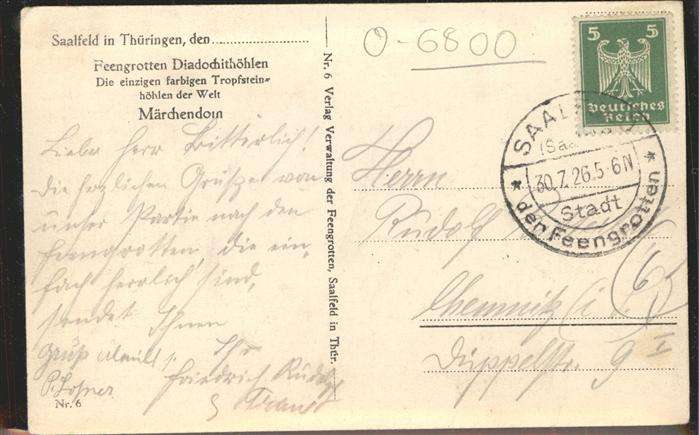 Saalfeld in Thüringen, den
Feengrotten Diadochithöhlen
Die einzigen farbigen Tropfstein-
höhlen der Welt
Märchendom
Lieber Herr Bitterlich!
Die herzlichen Grüße von
unser Partie nach den
Feengrotten, die ein-
fach herrlich sind,
sendet Ihnen
Ihr
Gruß
Friedrich
Nr. 6
Nr. 6 Verlag Verwaltung der Feengrotten, Saalfeld in Thür.
O-6800
5 5
Deutsches
Reich
SAALF
(Saa
30.7.26.5-6N
Stadt
der Feengrotten
Herrn
Rudolf
Chemnitz i/
Düppelstr. 9 I